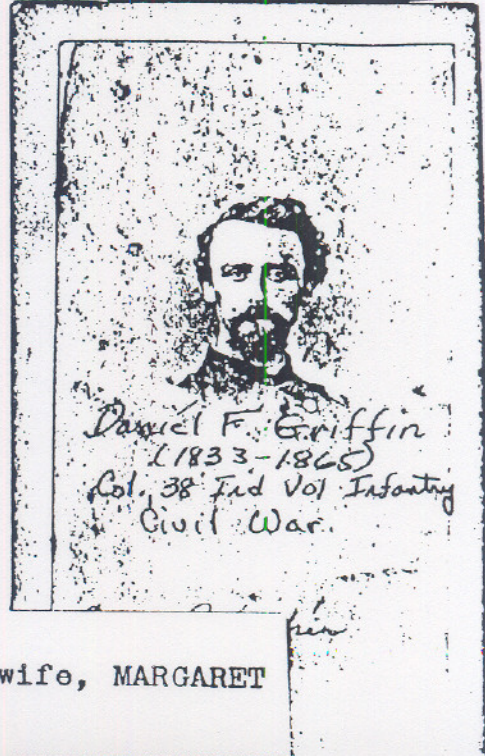 Daniel F. Griffin
(1833-1865)
Col, 38 Ind Vol Infantry
Civil War.
wife, MARGARET